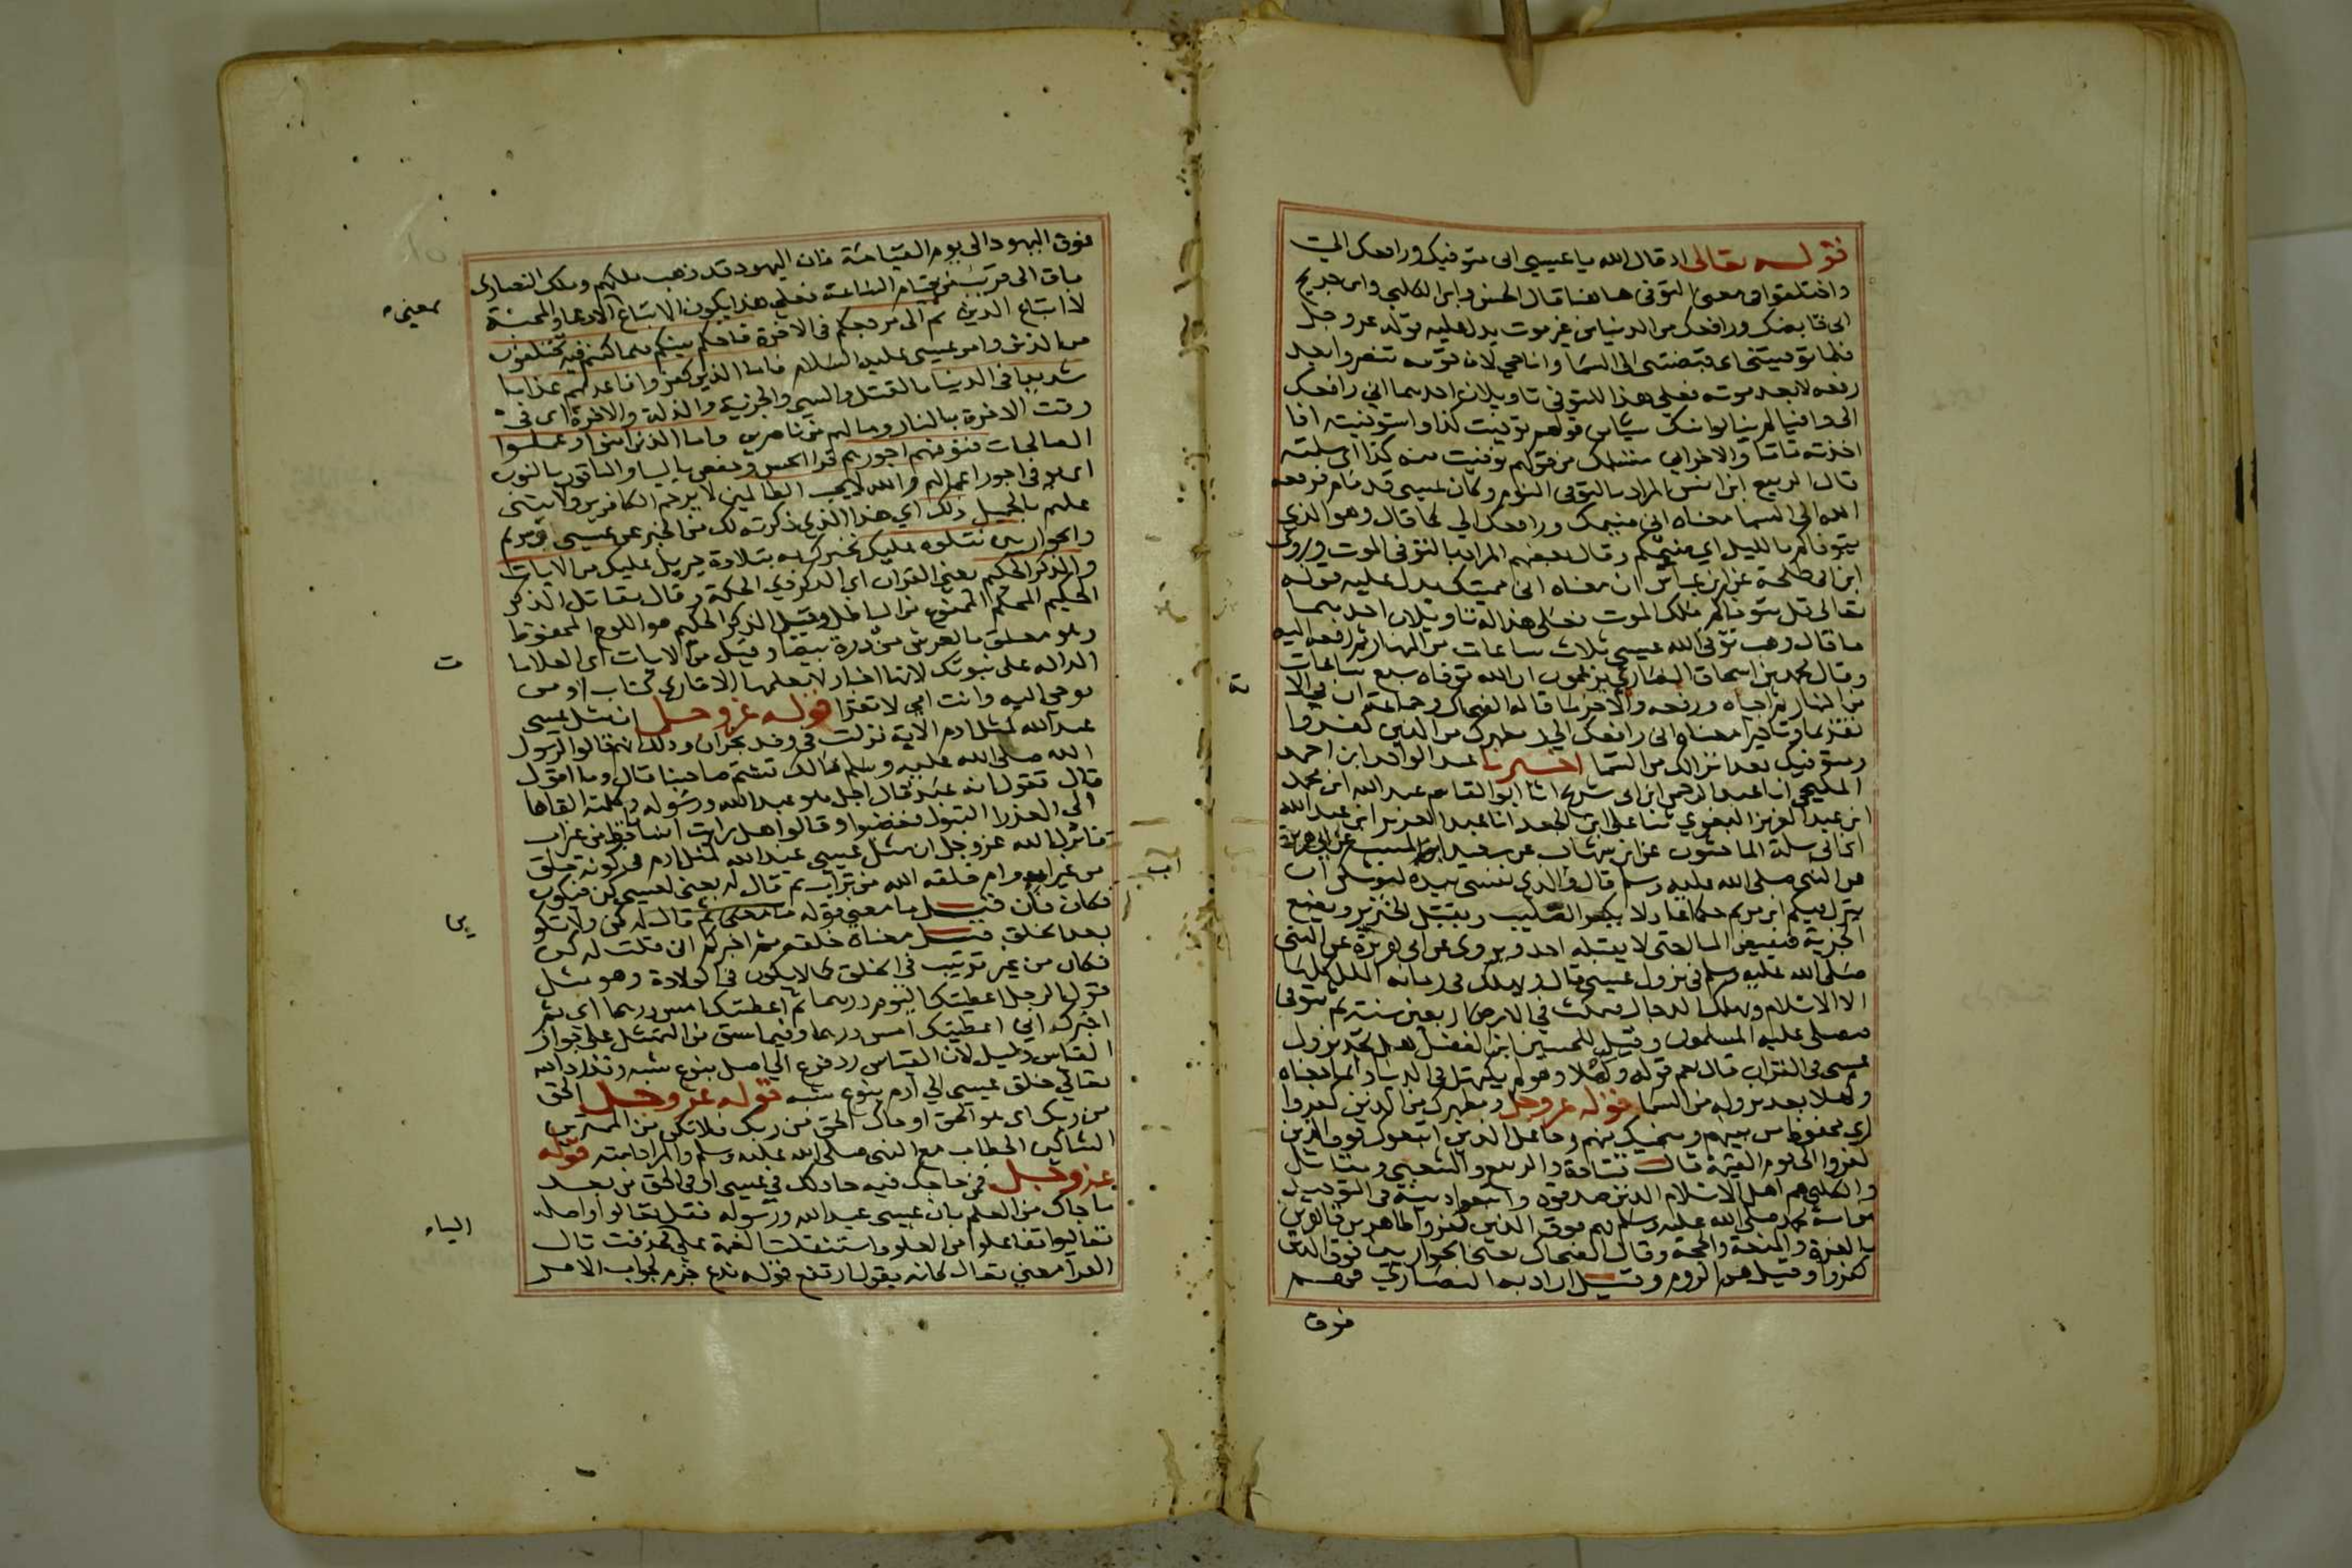 قوله تعالى اذ قال الله يا عيسى انى متوفيك ورافعك الىّ
واختلفوا فى معنى التوفى هاهنا قال الحسن والكلبي وابن جريج
انى قابضك ورافعك من الدنيا من غير موت يدل عليه قوله عز وجل
فلما توفيتنى اى قبضتنى الى السما وانا حى لان قومه تنصروا بعد
رفعه لا بعد موته فعلى هذا للتوفى تاويلان احدهما اني رافعك
الى وافيا لم ينالوا منك شيا من قولهم توفيت كذا واستوفيته اذا
اخذته تاما والاخر انى متسلمك من قولهم توفيت منه كذا اى تسلمته
قال الربيع ابن انس المراد بالتوفى النوم وكان عيسى قد نام فرفعه
الله الى السما معناه انى منيمك ورافعك الي كما قال وهو الذي
يتوفاكم بالليل اي ينيمكم وقال بعضهم المراد بالتوفى الموت وروى
ابن ابى طلحة عن ابن عباس ان معناه انى مميتك يدل عليه قوله
تعالى قل يتوفاكم ملك الموت فعلى هذا له تاويلان احدهما
ما قال وهب توفى الله عيسى ثلاث ساعات من النهار ثم رفعه اليه
وقال محمد بن اسحاق النصارى يزعمون ان الله توفاه سبع ساعات
من النهار ثم احياه ورفعه والاخر ما قاله الضحاك وجماعة ان في الا
تقديما وتاخيرا معناه انى رافعك الي ومطهرك من الذين كفروا
ومتوفيك بعد انزالك من السما اخبرنا عبد الواحد ابن احمد
المليحى انا عبد الرحمن ابن ابى شريح انا ابو القاسم عبد الله ابن محمد
ابن عبد العزيز البغوي ثنا على ابن الجعد انا عبد العزيز ابن عبد الله
ابن ابي سلمة الماجشون عن ابن شهاب عن سعيد ابن المسيب عن ابى هريرة
عن النبى صلى الله عليه وسلم قال والذي نفسى بيده ليوشكن ان
ينزل فيكم ابن مريم حكما عادلا يكسر الصليب ويقتل الخنزير ويضع
الجزية فيفيض المال حتى لا يقبله احد ويروى عن ابى هريرة عن النبى
صلى الله عليه وسلم فى نزول عيسى قال ويهلك فى زمانه الملل كلها
الا الاسلام ويهلك الدجال فيمكث في الارض اربعين سنة ثم يتوفى
فيصلى عليه المسلمون وقيل للحسين ابن الفضل هل تجد نزول
عيسى فى القران قال نعم قوله وكهلا وهو لم يكتهل فى الدنيا وانما معناه
وكهلا بعد نزوله من السما قوله عز وجل ومطهرك من الذين كفروا
اى مخرجك من بينهم ومنجيك منهم وجاعل الذين اتبعوك فوق الذين
كفروا الى يوم القيمة قال قتادة والربيع والشعبي ومقاتل
والكلبى هم اهل الاسلام الذين صدقوه واتبعوا دينه فى التوحيد
من امة محمد صلى الله عليه وسلم فهم فوق الذين كفروا ظاهرين قاهرين
بالعزة والمنعة والحجة وقال الضحاك يعنى الحواريين فوق الذين
كفروا وقيل هم الروم وقيل اراد به النصارى فهم
فوق
ية
فوق اليهود الى يوم القيامة فان اليهود قد ذهب ملكهم وملك النصارى
باق الى قرب من قيام الساعة فعلى هذا يكون الاتباع الادعا والمحبة
لا اتباع الدين ثم الى مرجعكم فى الاخرة فاحكم بينكم فيما كنتم فيه تختلفون
من الدين وامر عيسى عليه السلام فاما الذين كفروا فاعذبهم عذابا
شديدا فى الدنيا بالقتل والسبى والجزية والذلة والاخرة اى فى
وقت الاخرة بالنار وما لهم من ناصرين واما الذين امنوا وعملوا
الصالحات فنوفيهم اجورهم قرا الحسن وحفص باليا والباقون بالنون
اى نوفى اجور اعمالهم والله لا يحب الظالمين لا يرحم الكافرين ولا يثنى
عليهم بالجميل ذلك اي هذا الذي ذكرته لك من الخبر عن عيسى ومريم
والحواريين نتلوه عليك نخبرك به بتلاوة جبريل عليك من الايات
والذكر الحكيم يعنى القران اى الذكر ذي الحكمة وقال مقاتل الذكر
الحكيم المحكم الممنوع من الباطل وقيل الذكر الحكيم هو اللوح المحفوظ
وهو معلق بالعرش من درة بيضا وقيل من الايات اى العلاما
الدالة على نبوتك لانها اخبار لا يعلمها الا قارى كتاب او من
يوحى اليه وانت امي لا تقرا قوله عز وجل ان مثل عيسى
عند الله كمثل ادم الاية نزلت فى وفد نجران وذلك انهم قالوا لرسول
الله صلى الله عليه وسلم مالك تشتم صاحبنا قال وما اقول
قال تقول انه عبد قال اجل هو عبد الله ورسوله وكلمته القاها
الي العذرا البتول فغضبوا وقالوا هل رايت انسانا قط من غير اب
فانزل الله عز وجل ان مثل عيسى عند الله كمثل ادم فى كونه خلق
من غير اب وام خلقه الله من تراب ثم قال له يعنى لعيسى كن فيكون
فكان فان قيل ما معنى قوله ثم قال له كن ولا تكو
بعد الخلق قيل معناه خلقه ثم اخبركم انى قلت له كن
فكان من غير ترتيب فى الخلق كما لا يكون فى الولادة وهو مثل
قول الرجل اعطيتك اليوم درهما ثم اعطيتك امس درهما اى ثم
اخبرك اني اعطيتك امس درهما وفيما سبق من التمثيل على جواز
القياس دليل لان القياس رد فرع الى اصل بنوع شبه وقد رد الله
تعالى خلق عيسى الى ادم بنوع شبه قوله عز وجل الحق
من ربك اى هو الحق او جاك الحق من ربك فلا تكن من الممترين
الشاكين الخطاب مع النبى صلى الله عليه وسلم والمراد امته قوله
عز وجل فمن حاجك فيه جادلك فى عيسى او فى الحق من بعد
ما جاك من العلم بان عيسى عبد الله ورسوله فقل تعالوا واصله
تعاليوا تفاعلوا من العلو واستثقلت الضمة على فحذفت قال
الفرا معنى تعال كانه يقول ارتفع قوله ندع جزم لجواب الامر
معينه
ت
اب
ين
الياء